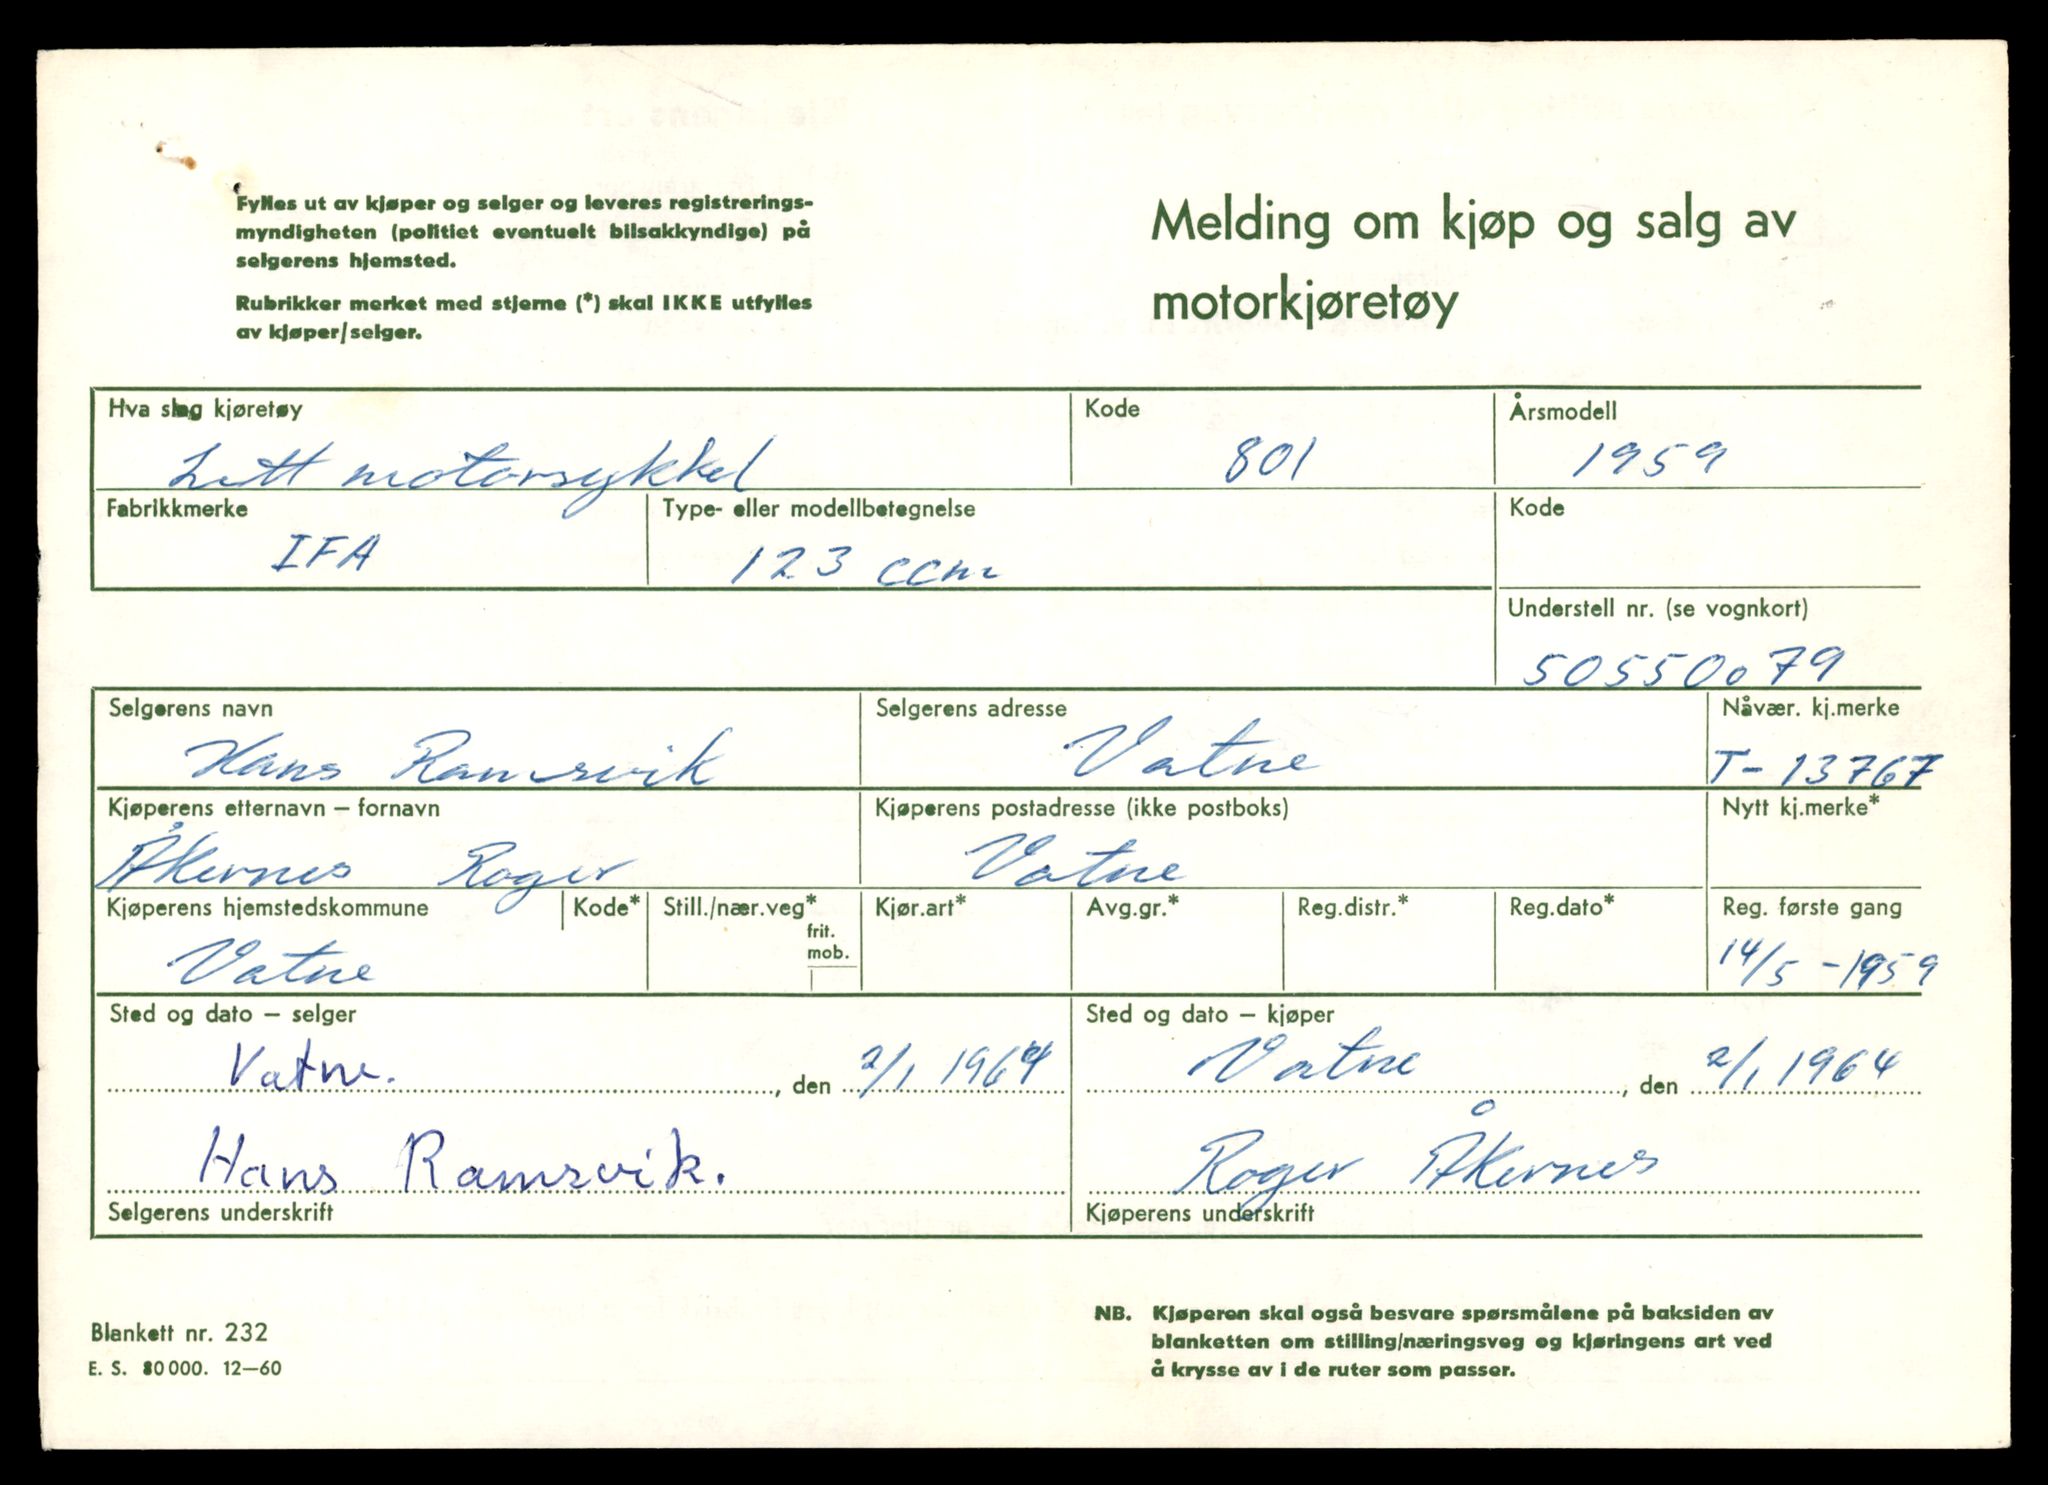 Fylles ut av kjøper og selger og leveres registrerings-
myndigheten (politiet eventuelt bilsakkyndige) på
selgerens hjemsted.
Rubrikker merket med stjerne (*) skal IKKE utfylles
av kjøper/selger.
Melding om kjøp og salg av
motorkjøretøy
Hva slag kjøretøy
Kode
Årsmodell
Lett motorsykkel
801
1959
Fabrikkmerke
Type- eller modellbetegnelse
Kode
IFA
123 ccm
Understell nr. (se vognkort)
50550079
Selgerens navn
Selgerens adresse
Nåvær. kj.merke
Hans Ramsvik
Vatne
T-13767
Kjøperens etternavn – fornavn
Kjøperens postadresse (ikke postboks)
Nytt kj.merke*
Åkernes Roger
Vatne
Kjøperens hjemstedskommune
Kode*
Still./nær.veg*
frit.
mob.
Kjør.art*
Avg.gr.*
Reg.distr.*
Reg.dato*
Reg. første gang
Vatne
14/5 -1959
Sted og dato – selger
Sted og dato – kjøper
Vatne. , den 2/1 1964
Vatne , den 2/1 1964
Hans Ramsvik.
Roger Åkernes
Selgerens underskrift
Kjøperens underskrift
Blankett nr. 232
E. S. 80 000. 12—60
NB. Kjøperen skal også besvare spørsmålene på baksiden av
blanketten om stilling/næringsveg og kjøringens art ved
å krysse av i de ruter som passer.